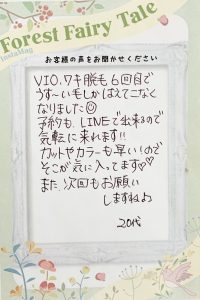 Forest Fairy Tale
お客様の声をお聞かせください
VIO、ワキ脱毛6回目で
うす〜い毛しかはえてこなく
なりました☺
予約も、LINEで出来るので
気軽に来れます!!
カットやカラーも早い!ので
そこが気に入ってます♡♡
また、次回もお願い
しますねょ
20代